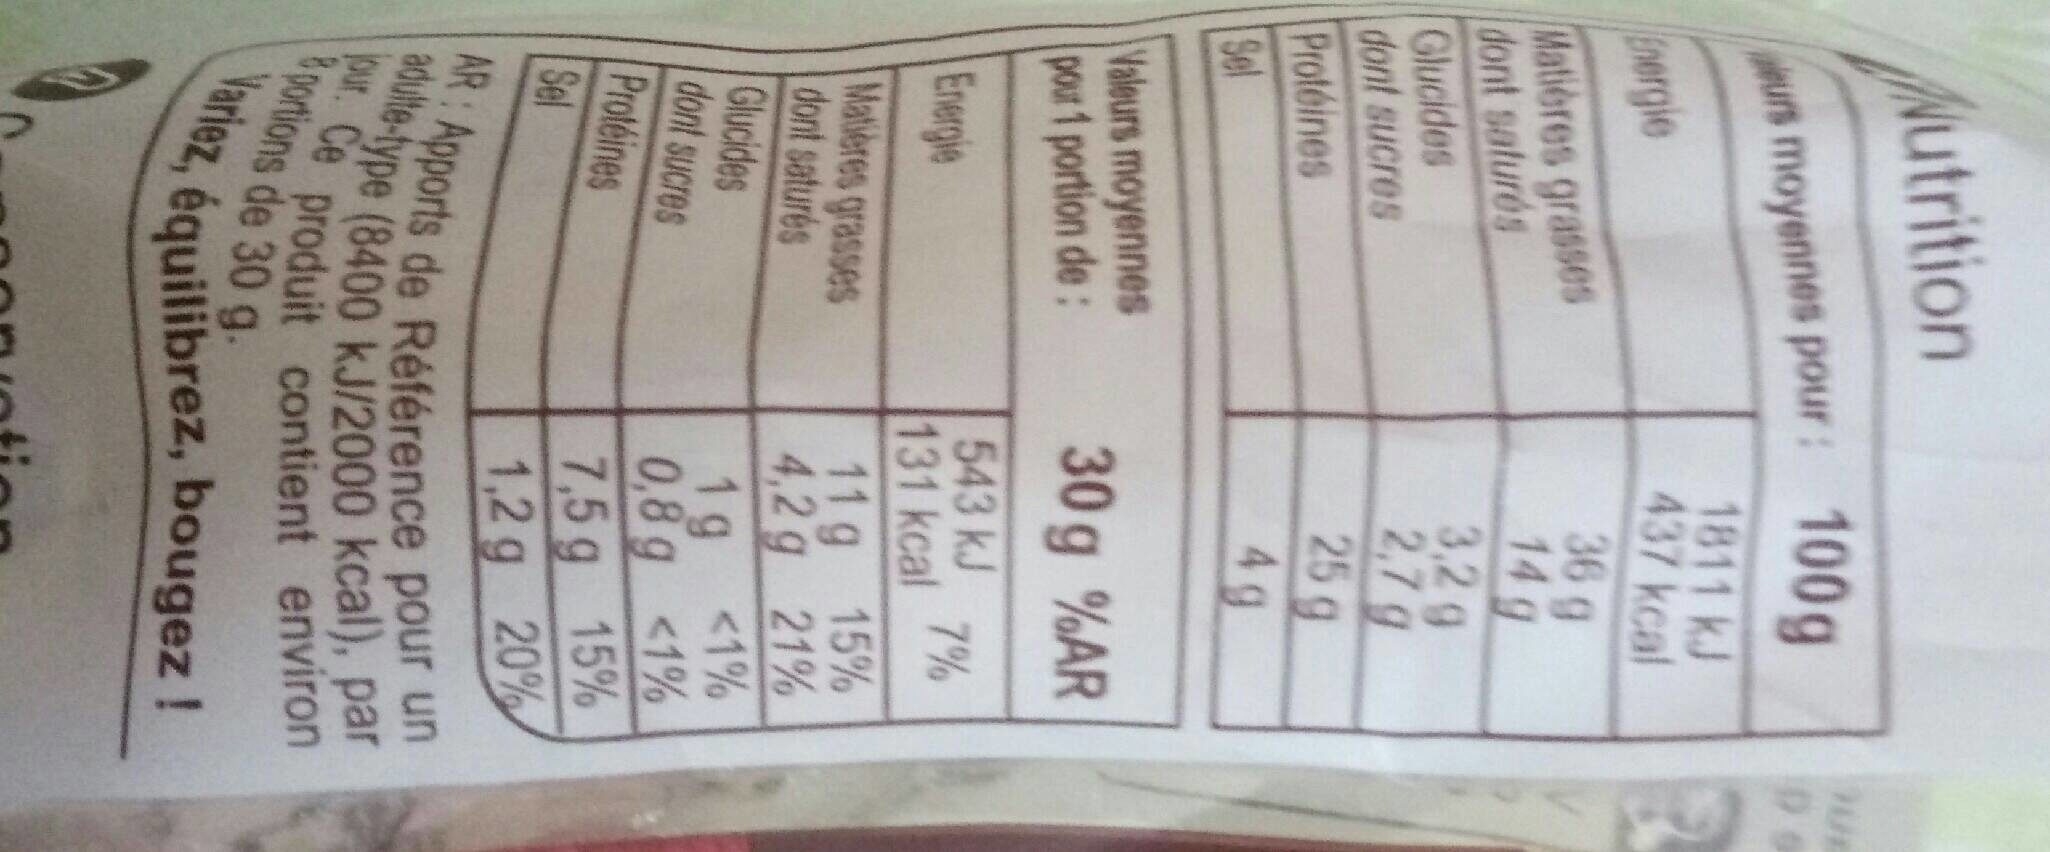 Nutrition
moyennes pour : 100g
Energie 1811 kJ
437 kcal
Matières grasses 36 g
dont saturés 14 g
Glucides 3,2 g
dont sucres 2,7 g
Protéines 25 g
Sel 4 g
Valeurs moyennes
pour 1 portion de : 30 g %AR
Energie 543 kJ 7%
131 kcal
Matières grasses 11 g 15%
dont saturés 4,2 g 21%
Glucides 1 g <1%
dont sucres 0,8 g <1%
Protéines 7,5 g 15%
Sel 1,2 g 20%
AR : Apports de Référence pour un
adulte-type (8400 kJ/2000 kcal), par
jour. Ce produit contient environ
8 portions de 30 g.
Variez, équilibrez, bougez !